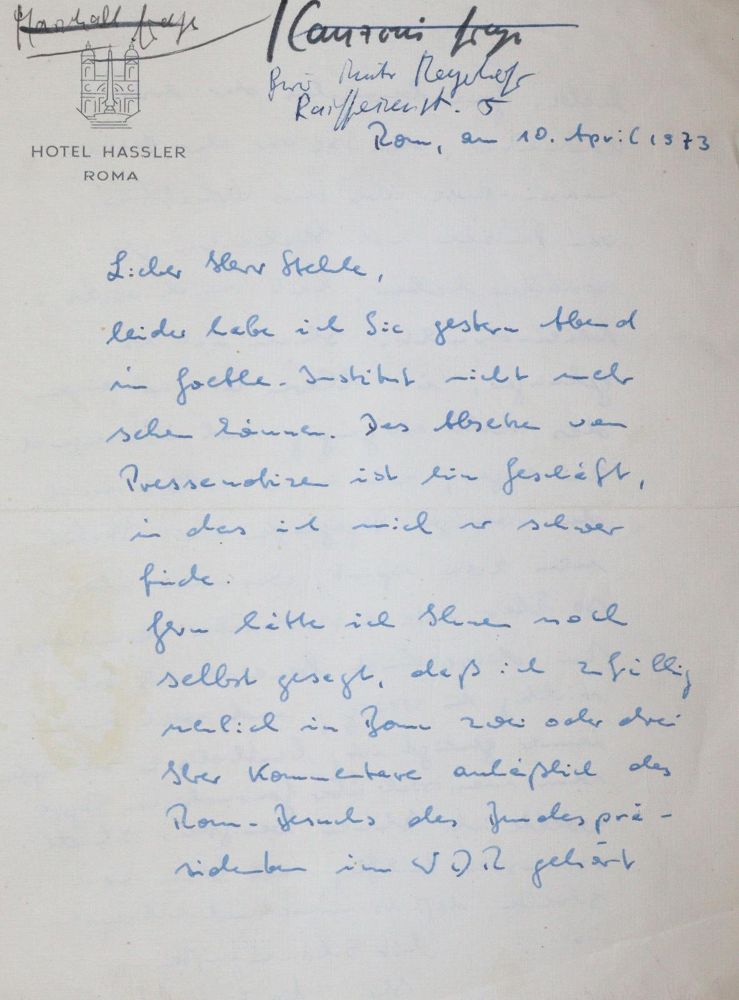 HOTEL HASSLER
ROMA
Raiffeisenstr. 5
Rom, am 10. April 1973
Lieber Herr Stehle,
leider habe ich Sie gestern Abend
im Goethe-Institut nicht mehr
sehen können. Das Absetzen von
Pressenotizen ist ein Geschäft,
in das ich mich nur schwer
finde.
Gern hätte ich Ihnen noch
selbst gesagt, daß ich zufällig
neulich in Bonn zwei oder drei
Ihrer Kommentare anläßlich des
Rom-Besuchs des Bundesprä-
sidenten im WDR gehört